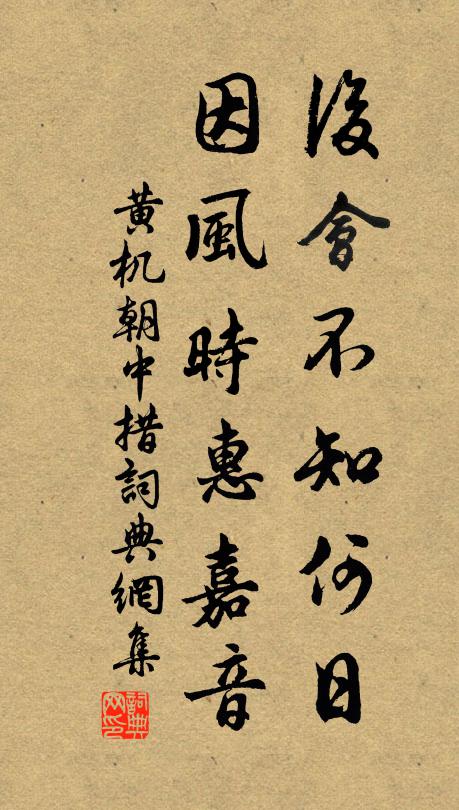 後會不知何日
因風時惠嘉音
黄机朝中措詞典網集
詞典网印